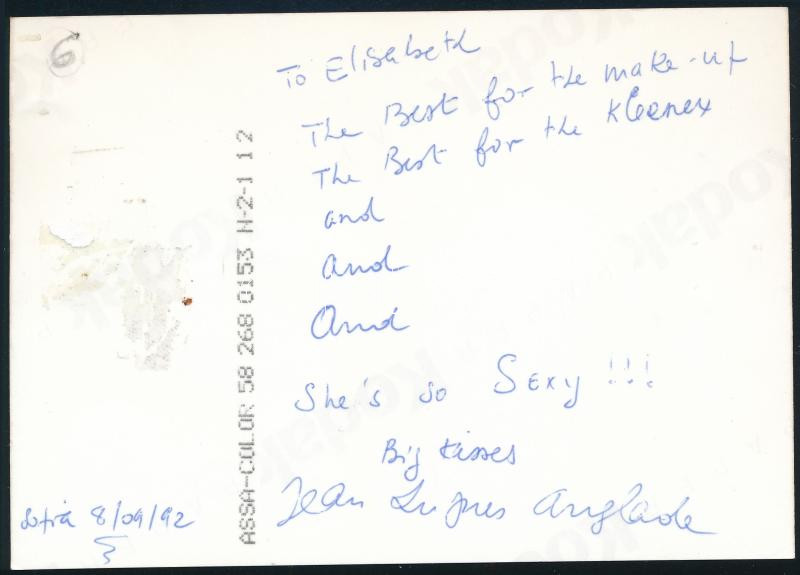 6
To Elisabeth
The Best for the make-up
The Best for the Kleenex
and
and
And
She's so Sexy !!!
Big kisses
Jean Hugues Anglade
Sofia 8/09/92
ASSA-COLOR 58 268 0153 N-2-1 12
Kodak
Kodak
Kodak
Kodak